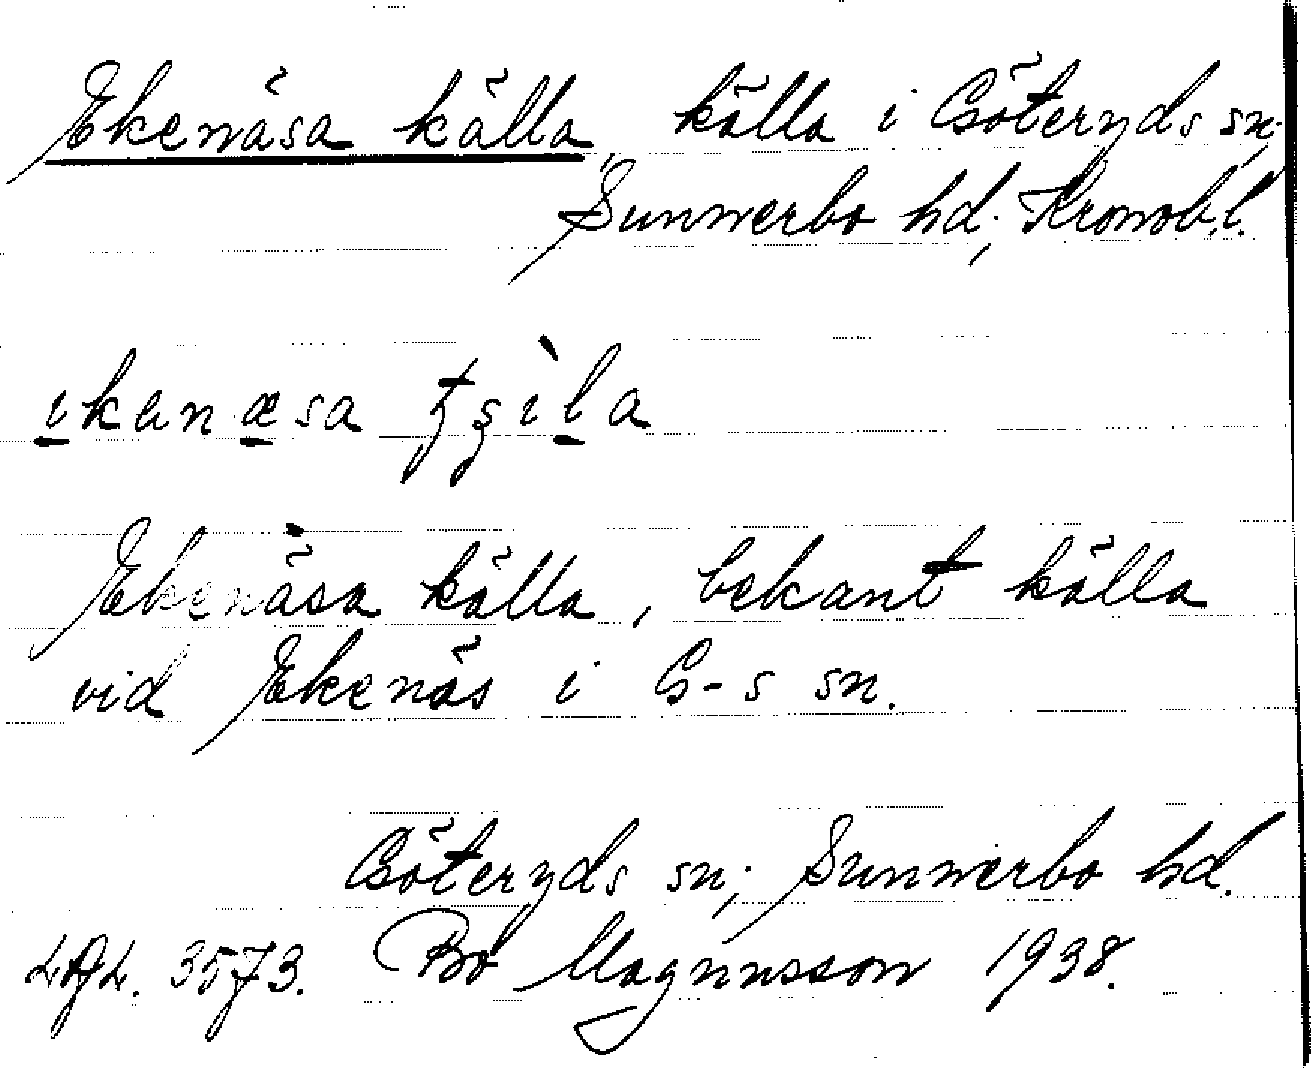 Ekenäsa källa, källa i Göteryds sn,
Sunnerbo hd, Kronob.l.
ikanæsa
Ekenäsa källa, bekant källa
vid Ekenäs i G-s sn.
Göteryds sn, Sunnerbo hd.
3573. Bo Magnusson 1938.